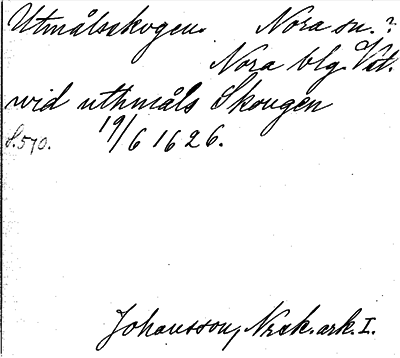 Utmålsskogen. Nora sn.?
Nora blg. Vstl.
wid uthmåls Skougen
S.570. 19/6 1626.
Johansson, Norask. ark. I.